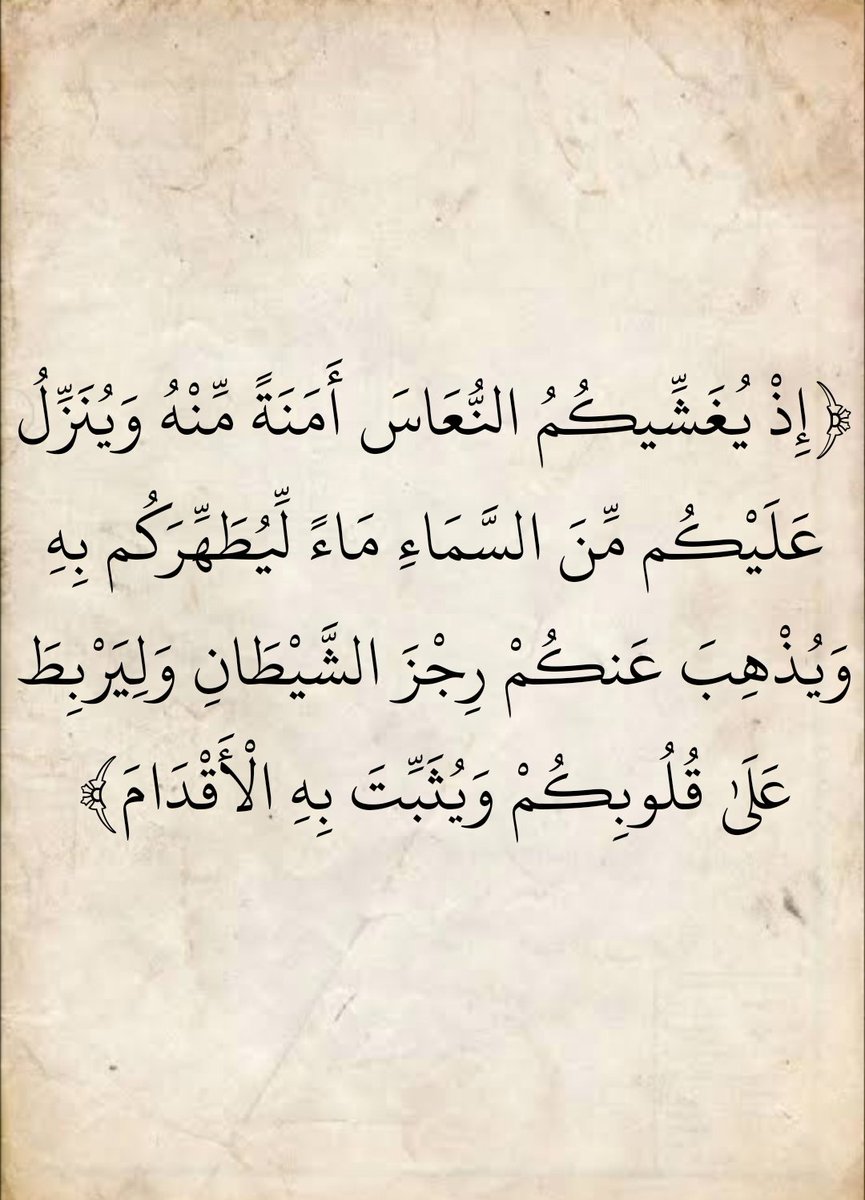 ﴿إِذْ يُغَشِّيكُمُ النُّعَاسَ أَمَنَةً مِّنْهُ وَيُنَزِّلُ
عَلَيْكُم مِّنَ السَّمَاءِ مَاءً لِّيُطَهِّرَكُم بِهِ
وَيُذْهِبَ عَنكُمْ رِجْزَ الشَّيْطَانِ وَلِيَرْبِطَ
عَلَىٰ قُلُوبِكُمْ وَيُثَبِّتَ بِهِ الْأَقْدَامَ﴾